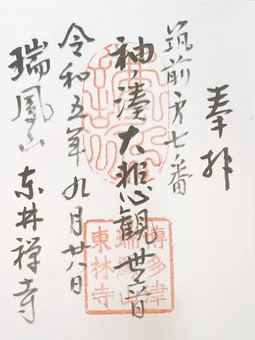 奉拝
筑前第七番
袖ノ湊大悲観世音
令和五年九月廿八日
瑞鳳山 東林禅寺
博多津
瑞鳳山
東林寺